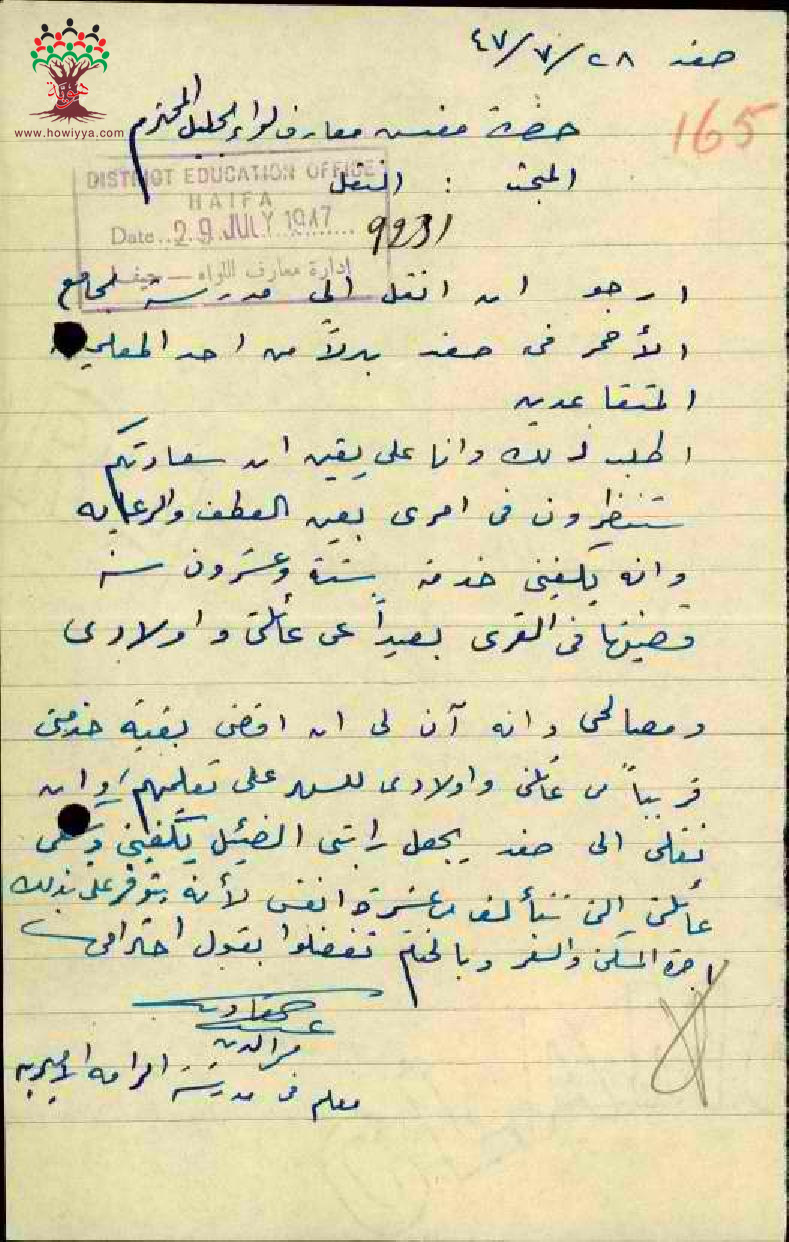 هوية
www.howiyya.com
صفد ٢٨/٧/٤٧
165
حضرة مفتش معارف لواء الجليل المحترم
المبحث : النقل
DISTRICT EDUCATION OFFICE
HAIFA
Date 29 JULY 1947
9231
إدارة معارف اللواء — حيفا
ارجو ان انقل الى مدرسة الجامع
الأحمر في صفد بدلاً من احد المعلمين
المتقاعدين
اطلب ذلك وانا على يقين ان سعادتكم
ستنظرون في امري بعين العطف والرعايه
وانه يكفيني خدمة ستة وعشرون سنه
قضيتها في القرى بعيداً عن عائلتي و اولادي
ومصالحي وانه آن لي ان اقضي بقية خدمتي
قريباً من عائلتي واولادي للسهر على تعلمهم وان
نقلي الى صفد يجعل راتبي الضئيل يكفيني ويكفي
عائلتي التي تتألف من عشرة انفس لأنه يتوفر علي بذلك
اجرة المسكن والسفر وبالختام تفضلوا بقول احترامي
معلم في مدرسة الرامه الاميريه